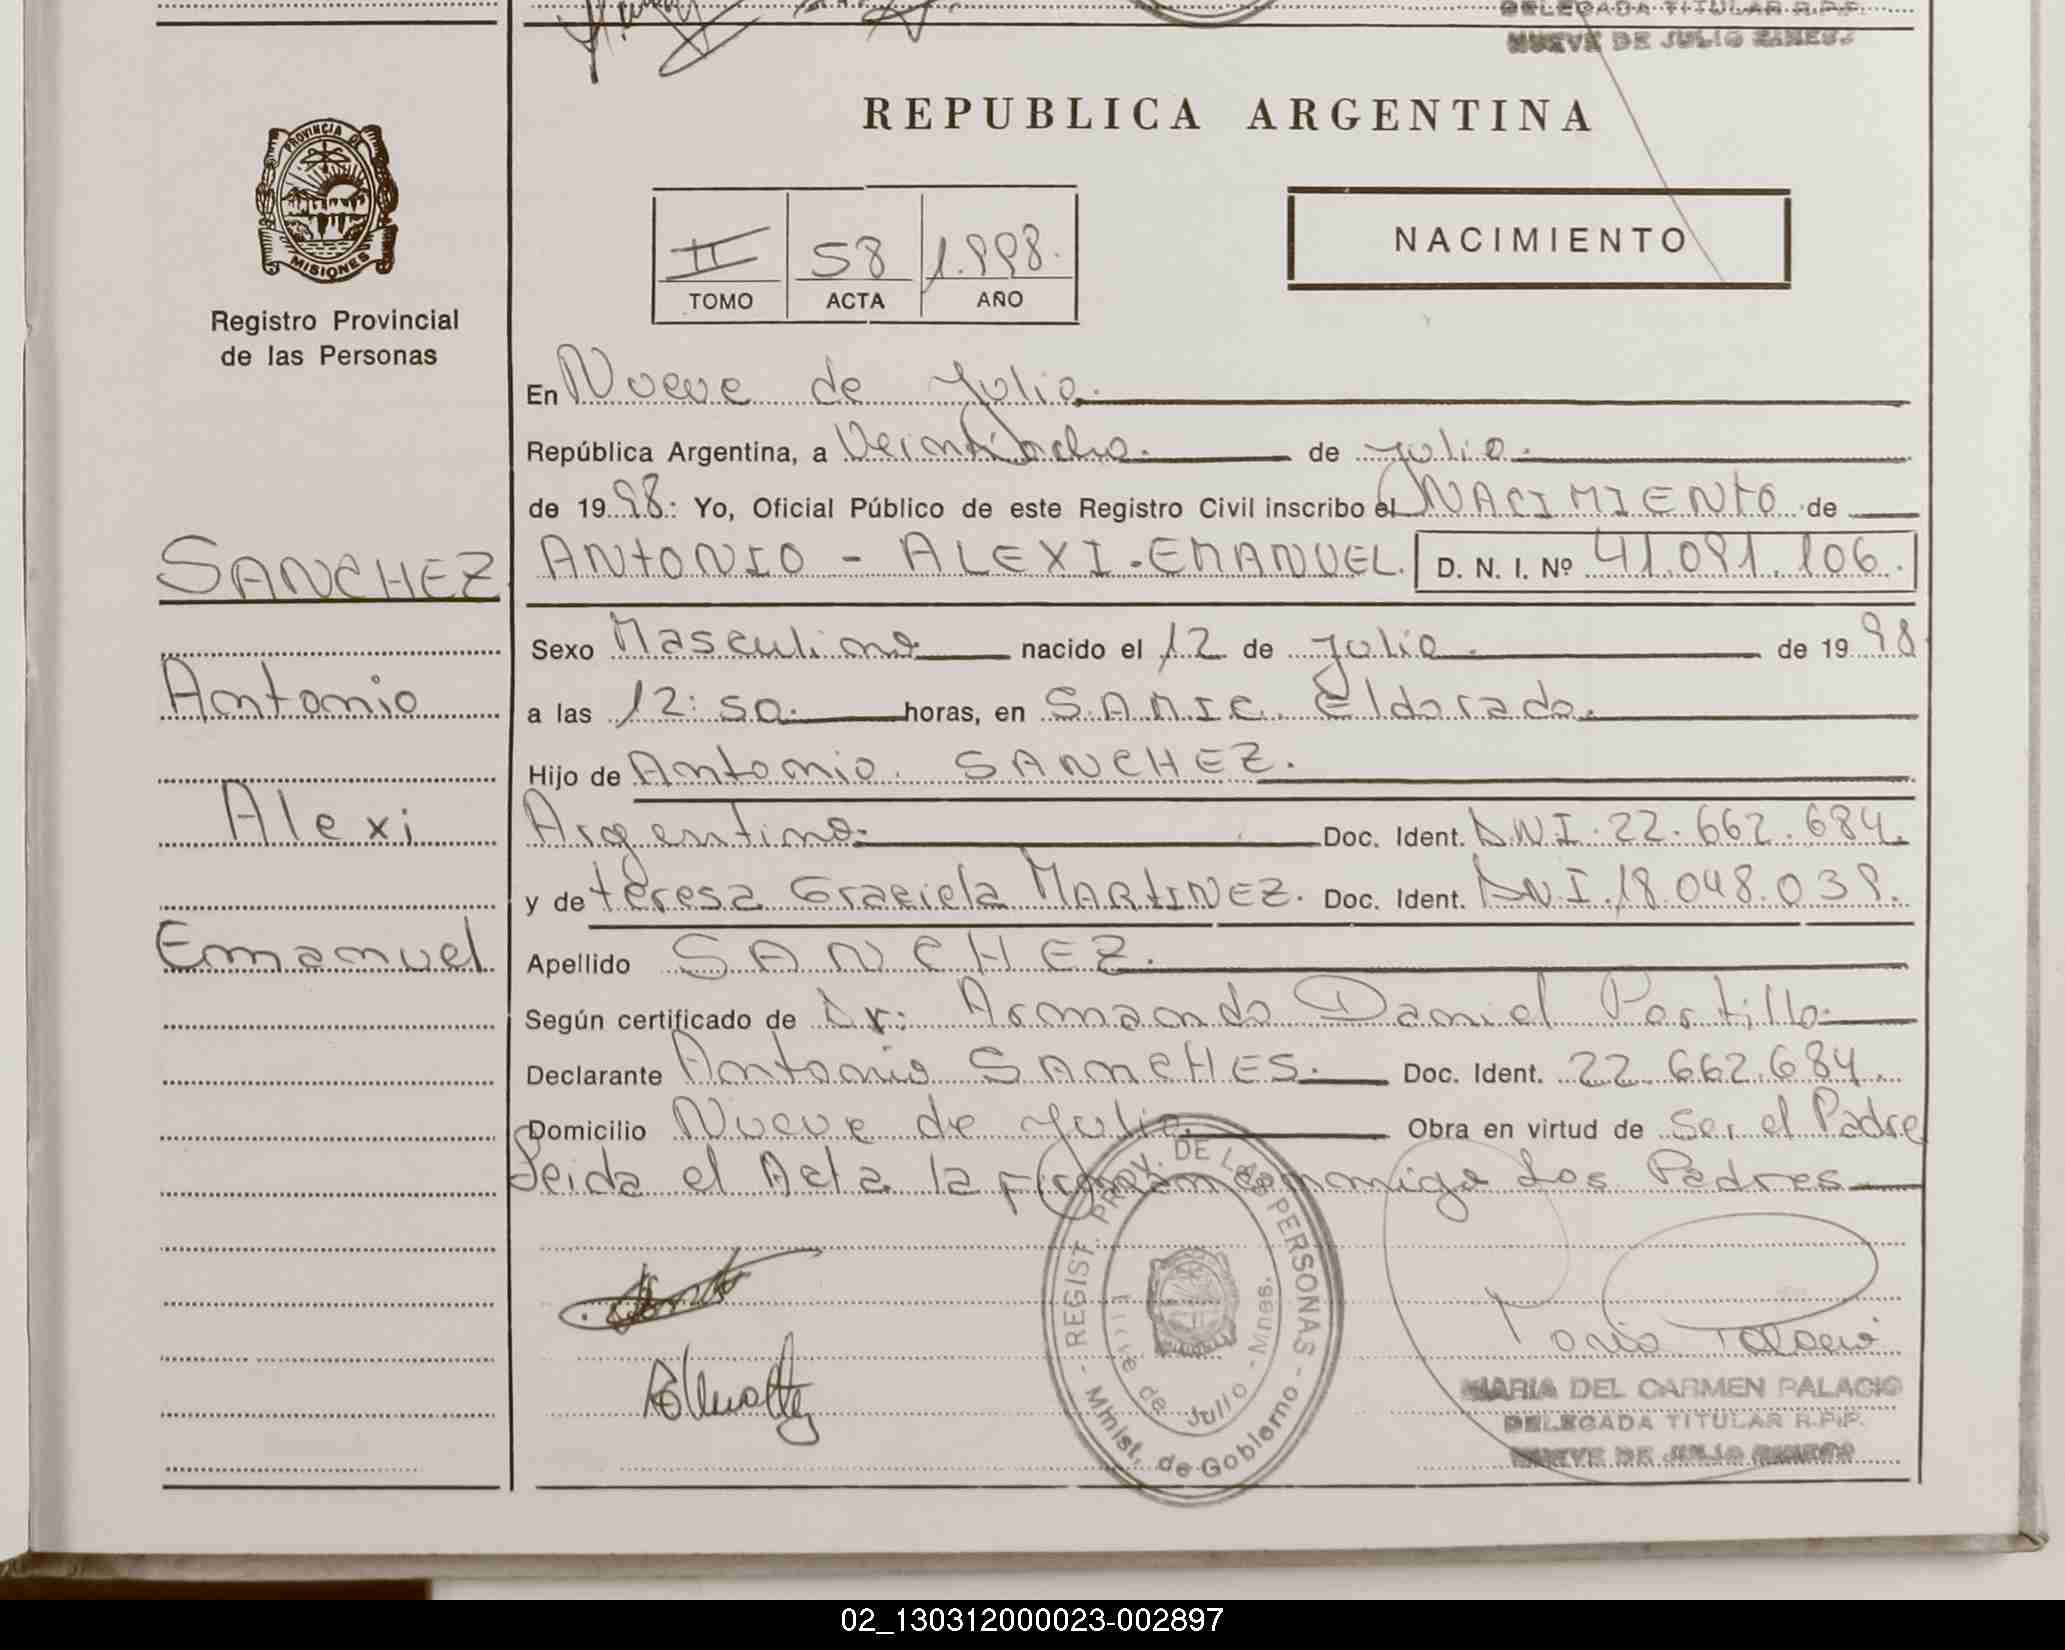 DELEGADA TITULAR R.P.P.
NUEVE DE JULIO
PROVINCIA DE
MISIONES
Registro Provincial
de las Personas
REPUBLICA ARGENTINA
II 58 1.998.
TOMO ACTA AÑO
NACIMIENTO
En Nueve de Julio.
República Argentina, a Veintiocho. de Julio.
de 1998: Yo, Oficial Público de este Registro Civil inscribo el NACIMIENTO de
SANCHEZ ANTONIO - ALEXI - EMANUEL. D. N. I. Nº 41.091.106.
Sexo Masculino nacido el 12 de Julio. de 1998
Antonio a las 12:50. horas, en S.A.M.I.C. Eldorado.
Hijo de Antonio. SANCHEZ.
Alexi Argentino. Doc. Ident. D.N.I. 22.662.684.
y de teresa Graciela MARtINEZ. Doc. Ident. D.N.I. 18.048.039.
Emanuel Apellido SANCHEZ.
Según certificado de Dr: Armando Daniel Portillo
Declarante Antonio SAnCHES. Doc. Ident. 22.662.684.
Domicilio Nueve de Julio. Obra en virtud de Ser el Padre
Leida el Acta la firman conmigo Los Padres
REGIST. PROV. DE LAS PERSONAS - Minist. de Gobierno -
Nueve de Julio - Mnes.
MARIA DEL CARMEN PALACIO
DELEGADA TITULAR R.P.P.
NUEVE DE JULIO
02_130312000023-002897